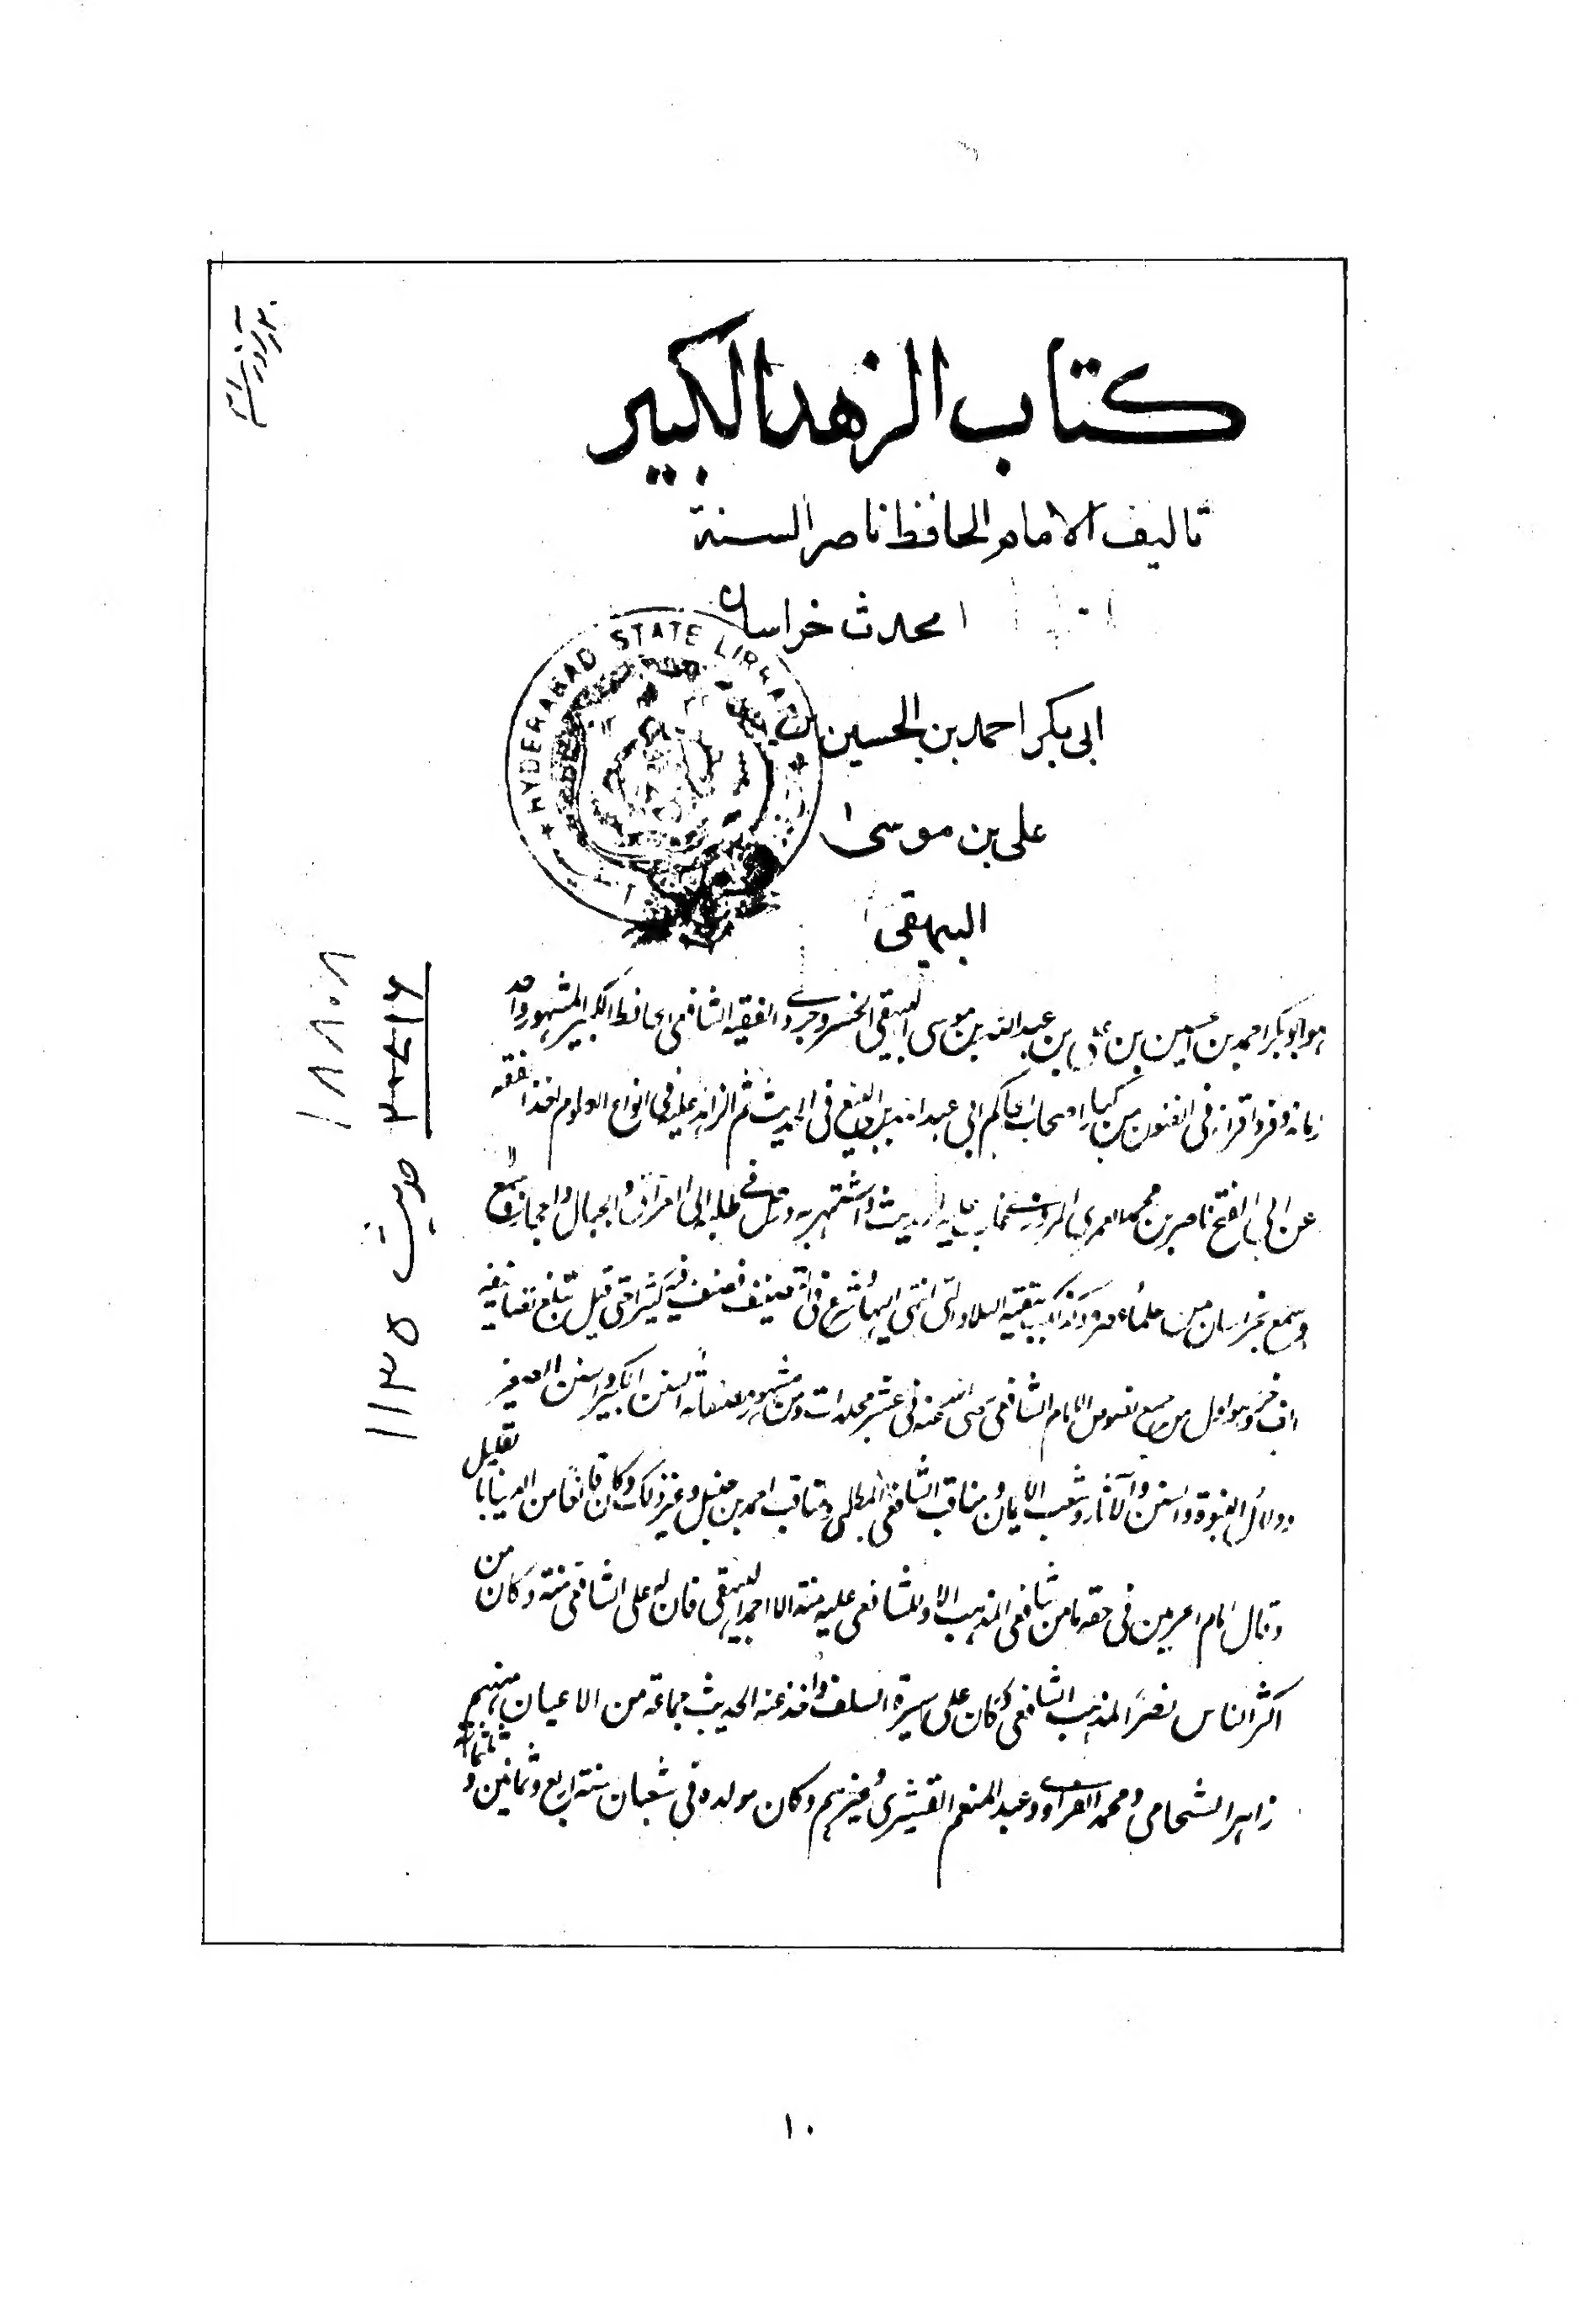 كتاب الزهد الكبير
تاليف الامام الحافظ ناصر السنة
محدث خراسان
ابى بكر احمد بن الحسين بن
على بن موسىٰ
البيهقى
HYDERABAD STATE LIBRARY
هو ابو بكر احمد بن الحسين بن على بن عبد الله بن موسى البيهقى الخسروجردى الفقيه الشافعى الحافظ الكبير المشهور واحد
زمانه وفرد اقرانه فى الفنون من كبار اصحاب الحاكم ابى عبد الله بن البيع فى الحديث ثم الزائد عليه فى انواع العلوم اخذ الفقه
عن ابى الفتح ناصر بن محمد العمرى المروزى غلب عليه الحديث واشتهر به ورحل فى طلبه الى العراق والجبال والحجاز وسمع
وسمع بخراسان من علماء عصره وكذلك ببقية البلاد التى انتهى اليها شرع فى التصنيف فصنف فيه كثيرا حتى قيل تبلغ تصانيفه
الف جزء وهو اول من جمع نصوص الامام الشافعى رضى الله عنه فى عشر مجلدات ومن مشهور مصنفاته السنن الكبير والسنن الصغير
ودلائل النبوة والسنن والآثار وشعب الايمان ومناقب الشافعى المطلبى ومناقب احمد بن حنبل وغير ذلك وكان قانعًا من الدنيا بالقليل
وقال امام الحرمين فى حقه ما من شافعى المذهب الا وللشافعى عليه منة الا احمد البيهقى فان له على الشافعى منة وكان من
اكثر الناس نصرًا لمذهب الشافعى وكان على سيرة السلف واخذ عنه الحديث جماعة من الاعيان منهم
زاهر الشحامى ومحمد الفراوى وعبد المنعم القشيرى وغيرهم وكان مولده فى شعبان سنة اربع وثمانين وثلثمائة
١٨٨٠٨
حديث
١١٣٥
١٠